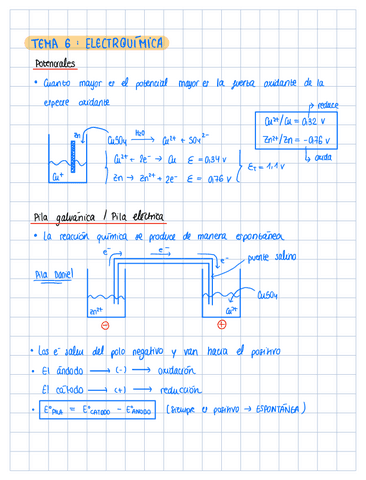 TEMA 6: ELECTROQUÍMICA
Potenciales
• Cuanto mayor es el potencial mayor es la fuerza oxidante de la
especie oxidante
→ reduce
Cu²⁺/Cu = 0,32 V
Zn²⁺/Zn = -0,76 V
↳ oxida
Zn
Cu⁺
CuSO₄ —H₂O→ Cu²⁺ + SO₄²⁻
Cu²⁺ + 2e⁻ → Cu E = 0,34 V
Zn → Zn²⁺ + 2e⁻ E = 0,76 V
E_T = 1,1 V
Pila galvánica / Pila eléctrica
• La reacción química se produce de manera espontánea
Pila Daniel
e⁻
e⁻
e⁻
puente salino
CuSO₄
Zn²⁺
Cu²⁺
⊖
⊕
• Los e⁻ salen del polo negativo y van hacia el positivo
• El ánodo → (-) → oxidación
El cátodo → (+) → reducción
• E°PILA = E°CÁTODO - E°ÁNODO (siempre es positivo → ESPONTÁNEA)